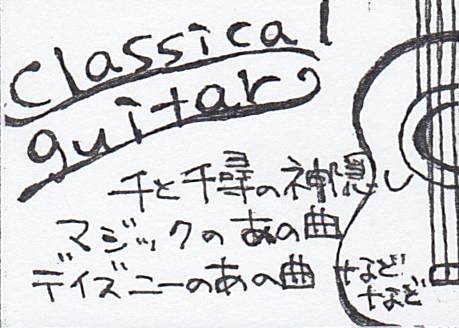 Classical
guitar
千と千尋の神隠し
マジックのあの曲
ディズニーのあの曲 などなど